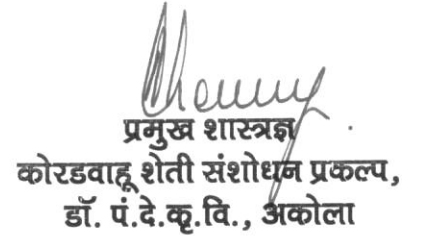 प्रमुख शास्त्रज्ञ
कोरडवाहू शेती संशोधन प्रकल्प,
डॉ. पं.दे.कृ.वि., अकोला